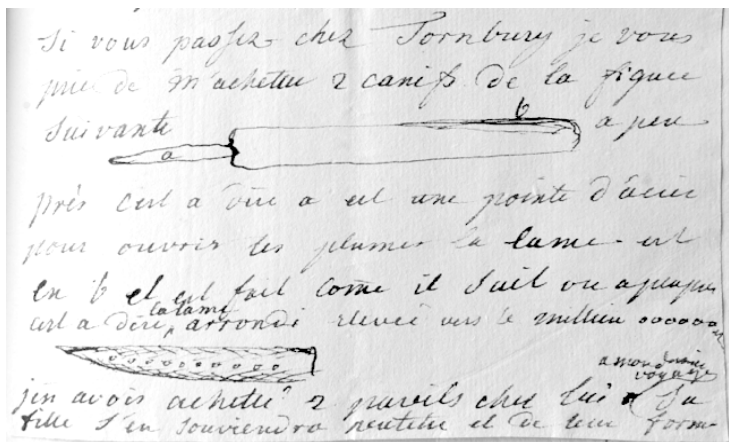 Si vous passez chez Tornbury je vous
prie de m'achetter 2 canifs de la figure
suivante a b a peu
près c'est a dire a est une pointe d'acier
pour ouvrir les plumes la lame est
en b et est fait come il suit ou apeuprès
c'est a dire la lame arrondi relevée vers le millieu oooooo
a mon dernier voyage
j'en avois achetté 2 pareils chez lui sa
fille s'en souviendra peutetre et de leur form